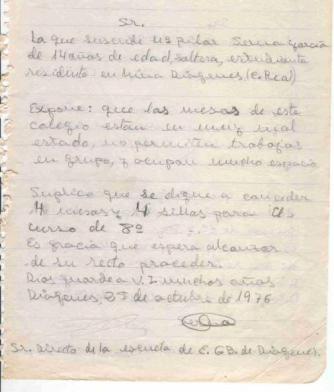 Sr.
La que suscribe Mª Pilar Serna García
de 14 años de edad, soltera, estudiante
residente en Mina Diógenes (C. Real)
Expone: que las mesas de este
colegio están en muy mal
estado, no permiten trabajar
en grupo, y ocupan mucho espacio
Suplico que se digne a conceder
4 mesas y 4 sillas para
curso de 8º
Es gracia que espera alcanzar
de su recto proceder.
Dios guarde a V. I. muchos años
Diógenes, de octubre de 1976
Sr. Directo de la escuela de E. GB. de Diógenes.